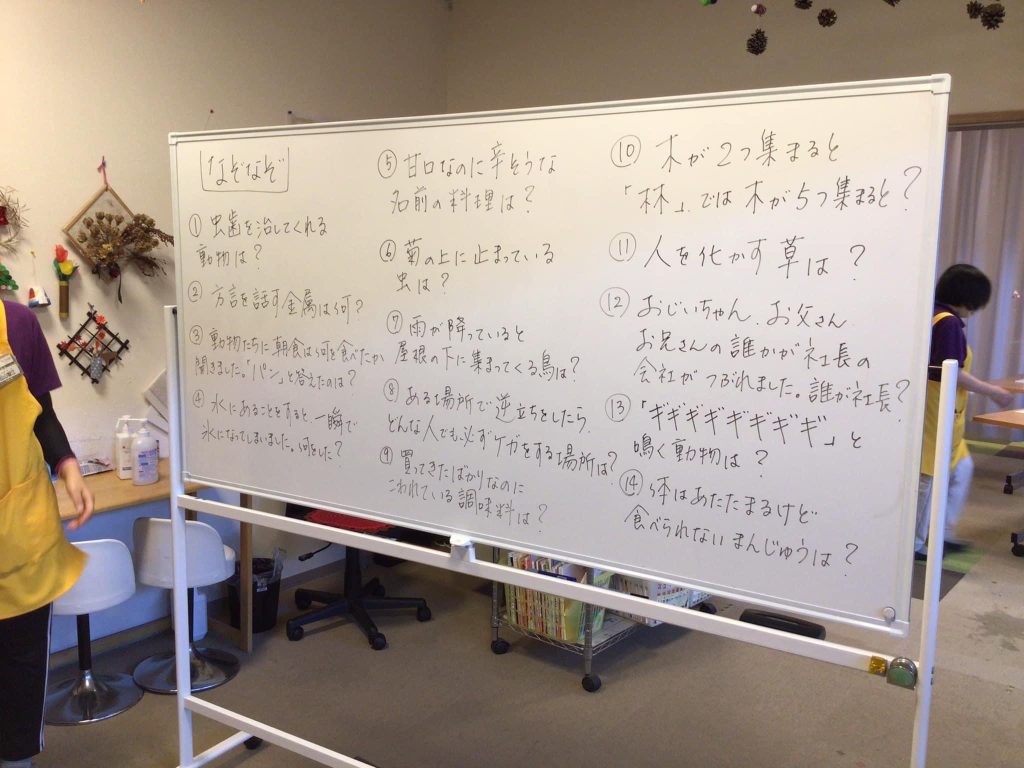 なぞなぞ
① 虫歯を治してくれる
動物は?
② 方言を話す金属は何?
③ 動物たちに朝食は何を食べたか
聞きました。「パン」と答えたのは?
④ 水にあることをすると、一瞬で
氷になってしまいました。何をした?
⑤ 甘口なのに辛そうな
名前の料理は?
⑥ 菊の上に止まっている
虫は?
⑦ 雨が降っていると
屋根の下に集まってくる鳥は?
⑧ ある場所で逆立ちをしたら、
どんな人でも必ずケガをする場所は?
⑨ 買ってきたばかりなのに
こわれている調味料は?
⑩ 木が2つ集まると
「林」では木が5つ集まると?
⑪ 人を化かす草は?
⑫ おじいちゃん、お父さん
お兄さんの誰かが社長の
会社がつぶれました。誰が社長?
⑬「ギギギギギギギギ」と
鳴く動物は?
⑭ 体はあたたまるけど
食べられないまんじゅうは?